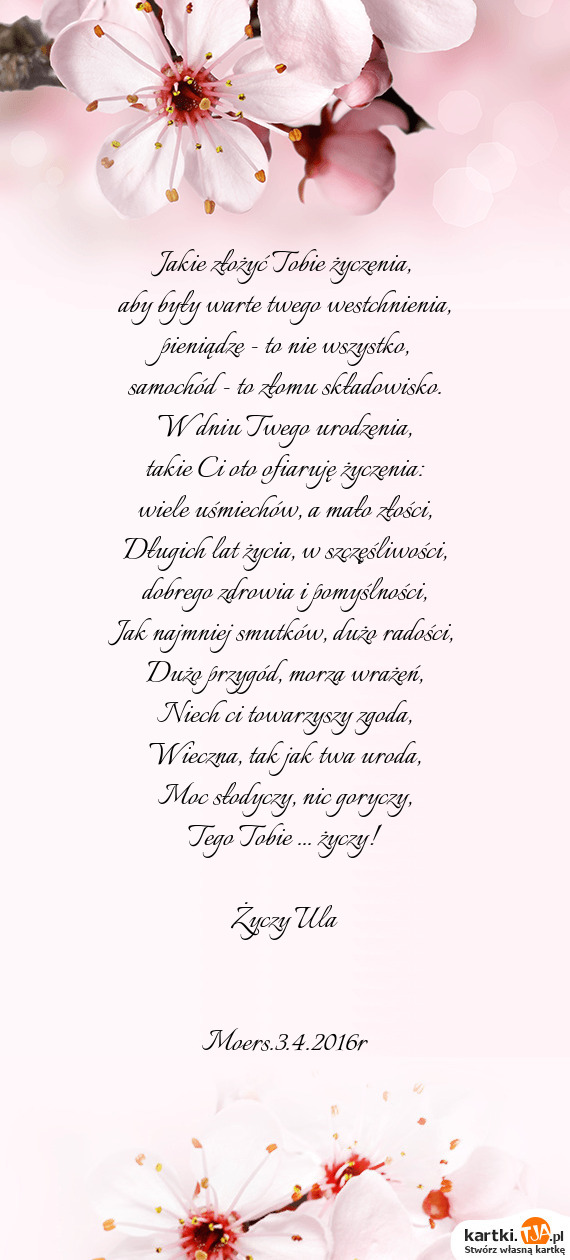 Jakie złożyć Tobie życzenia,
aby były warte twego westchnienia,
pieniądze - to nie wszystko,
samochód - to złomu składowisko.
W dniu Twego urodzenia,
takie Ci oto ofiaruję życzenia:
wiele uśmiechów, a mało złości,
Długich lat życia, w szczęśliwości,
dobrego zdrowia i pomyślności,
Jak najmniej smutków, dużo radości,
Dużo przygód, morza wrażeń,
Niech ci towarzyszy zgoda,
Wieczna, tak jak twa uroda,
Moc słodyczy, nic goryczy,
Tego Tobie ... życzy!
Życzy Ula
Moers.3.4.2016r
kartki.TJA.pl
Stwórz własną kartkę